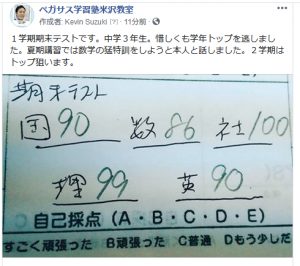 ペガサス学習塾米沢教室
作成者: Kevin Suzuki [?]・11分前・
１学期期末テストです。中学３年生。惜しくも学年トップを逃しまし
た。夏期講習では数学の猛特訓をしようと本人と話しました。２学期は
トップ狙います。
期末テスト
国 90 数 86 社 100
理 99 英 90
自己採点（A・B・C・D・E）
すごく頑張った B頑張った C普通 Dもう少しだ